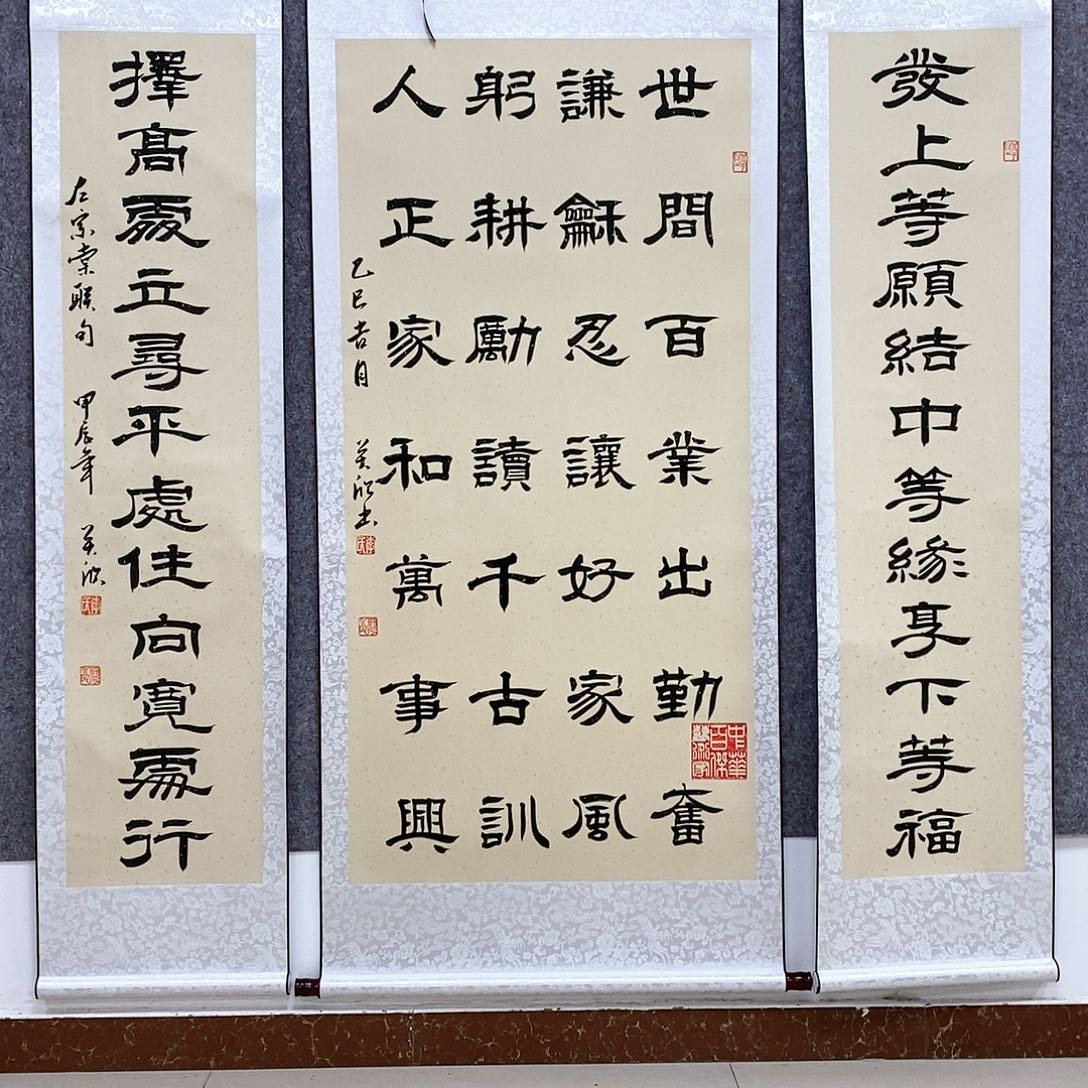 發上等願結中等緣享下等福
世間百業出勤奮
謙龢忍讓好家風
躬耕勵讀千古訓
人正家和萬事興
乙巳吉月
擇高處立尋平處住向寬處行
左宗棠联句 甲辰年
中華百傑